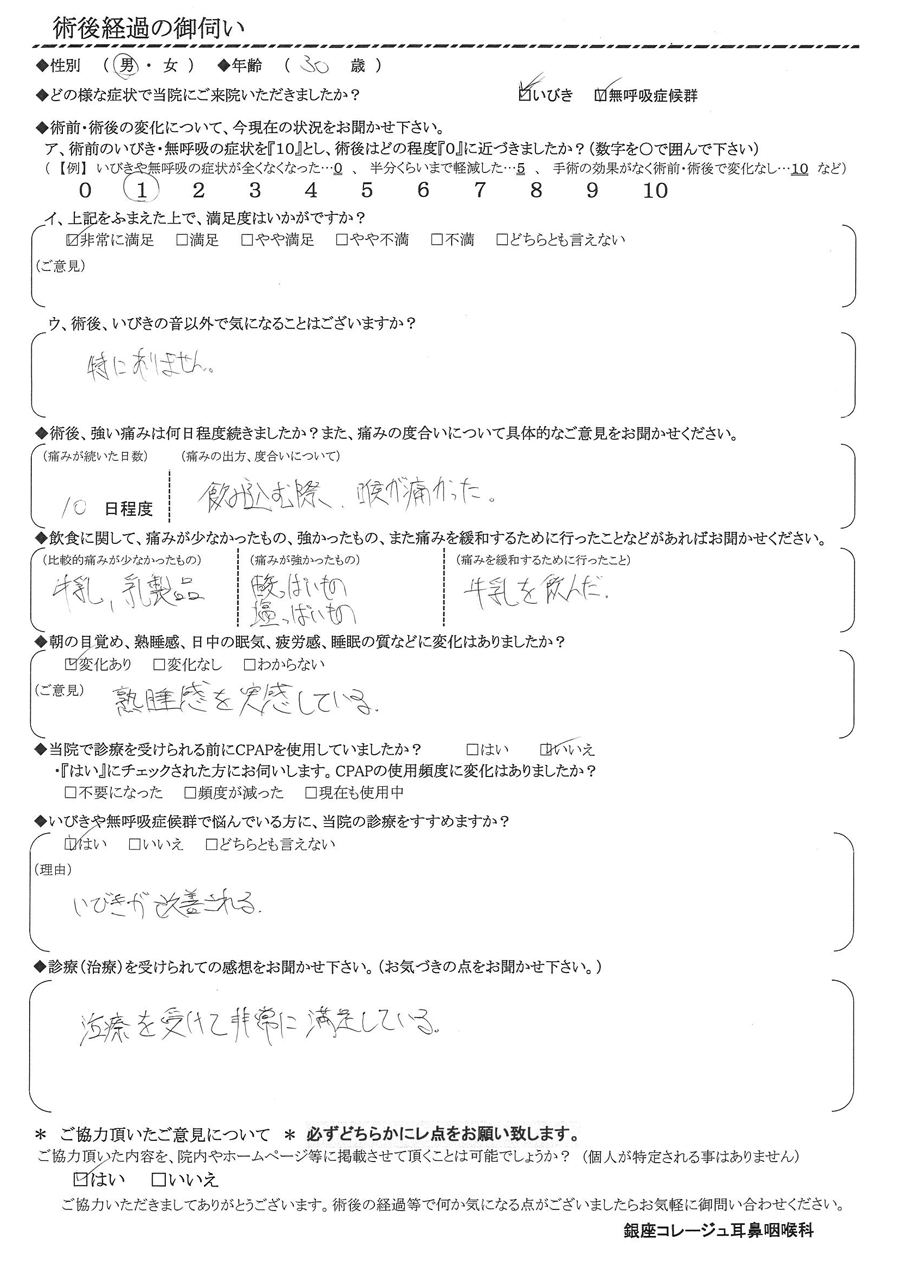 術後経過の御伺い
◆性別 ( 男 ・ 女 ) ◆年齢 ( 30 歳 )
◆どの様な症状で当院にご来院いただきましたか? ☑いびき ☑無呼吸症候群
◆術前・術後の変化について、今現在の状況をお聞かせ下さい。
ア、術前のいびき・無呼吸の症状を『10』とし、術後はどの程度『0』に近づきましたか?(数字を○で囲んで下さい)
(【例】 いびきや無呼吸の症状が全くなくなった…0 、 半分くらいまで軽減した…5 、 手術の効果がなく術前・術後で変化なし…10 など)
0 1 2 3 4 5 6 7 8 9 10
イ、上記をふまえた上で、満足度はいかがですか?
☑非常に満足 □満足 □やや満足 □やや不満 □不満 □どちらとも言えない
(ご意見)
ウ、術後、いびきの音以外で気になることはございますか?
特にありません。
◆術後、強い痛みは何日程度続きましたか?また、痛みの度合いについて具体的なご意見をお聞かせください。
(痛みが続いた日数) (痛みの出方、度合いについて)
10 日程度 飲み込む際、喉が痛かった。
◆飲食に関して、痛みが少なかったもの、強かったもの、また痛みを緩和するために行ったことなどがあればお聞かせください。
(比較的痛みが少なかったもの) (痛みが強かったもの) (痛みを緩和するために行ったこと)
牛乳, 乳製品 酸っぱいもの 牛乳を飲んだ.
塩っぱいもの
◆朝の目覚め、熟睡感、日中の眠気、疲労感、睡眠の質などに変化はありましたか?
☑変化あり □変化なし □わからない
(ご意見)
熟睡感を実感している.
◆当院で診療を受けられる前にCPAPを使用していましたか? □はい ☑いいえ
・『はい』にチェックされた方にお伺いします。CPAPの使用頻度に変化はありましたか?
□不要になった □頻度が減った □現在も使用中
◆いびきや無呼吸症候群で悩んでいる方に、当院の診療をすすめますか?
☑はい □いいえ □どちらとも言えない
(理由)
いびきが改善される.
◆診療(治療)を受けられての感想をお聞かせ下さい。(お気づきの点をお聞かせ下さい。)
治療を受けて非常に満足している。
* ご協力頂いたご意見について * 必ずどちらかにレ点をお願い致します。
ご協力頂いた内容を、院内やホームページ等に掲載させて頂くことは可能でしょうか? (個人が特定される事はありません)
☑はい □いいえ
ご協力いただきましてありがとうございます。術後の経過等で何か気になる点がございましたらお気軽に御問い合わせください。
銀座コレージュ耳鼻咽喉科